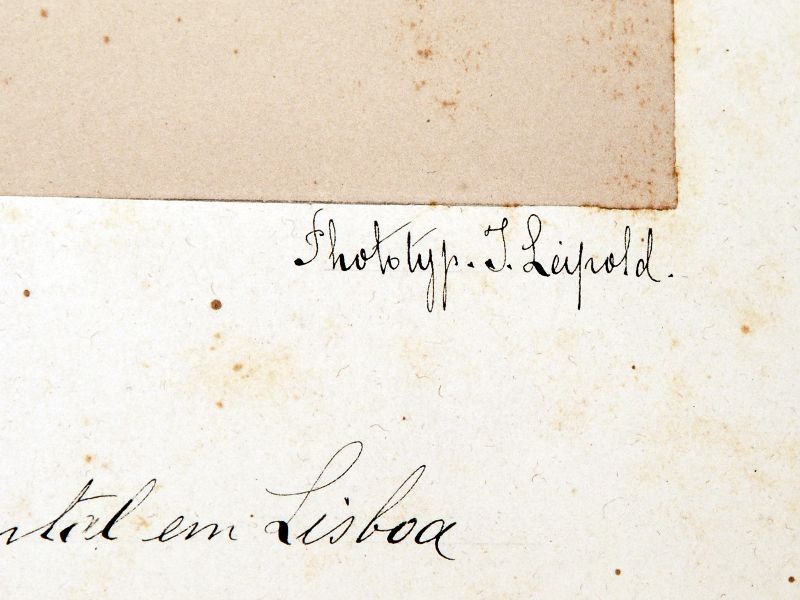 Phototyp. J. Leipold.
ntal em Lisboa